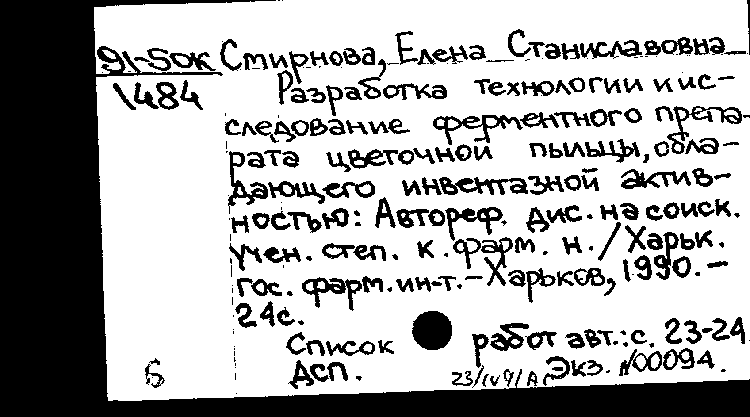 91-50к Смирнова, Елена Станиславовна
1484 Разработка технологии и ис-
следование ферментного препа-
рата цветочной пыльцы, обла-
дающего инвентазной актив-
ностью: Автореф. дис. на соиск.
учен. степ. к. фарм. н. / Харьк.
гос. фарм. ин-т. - Харьков, 1990. -
24 с.
Список работ авт.: с. 23-24
ДСП. Экз. N00094.
Б